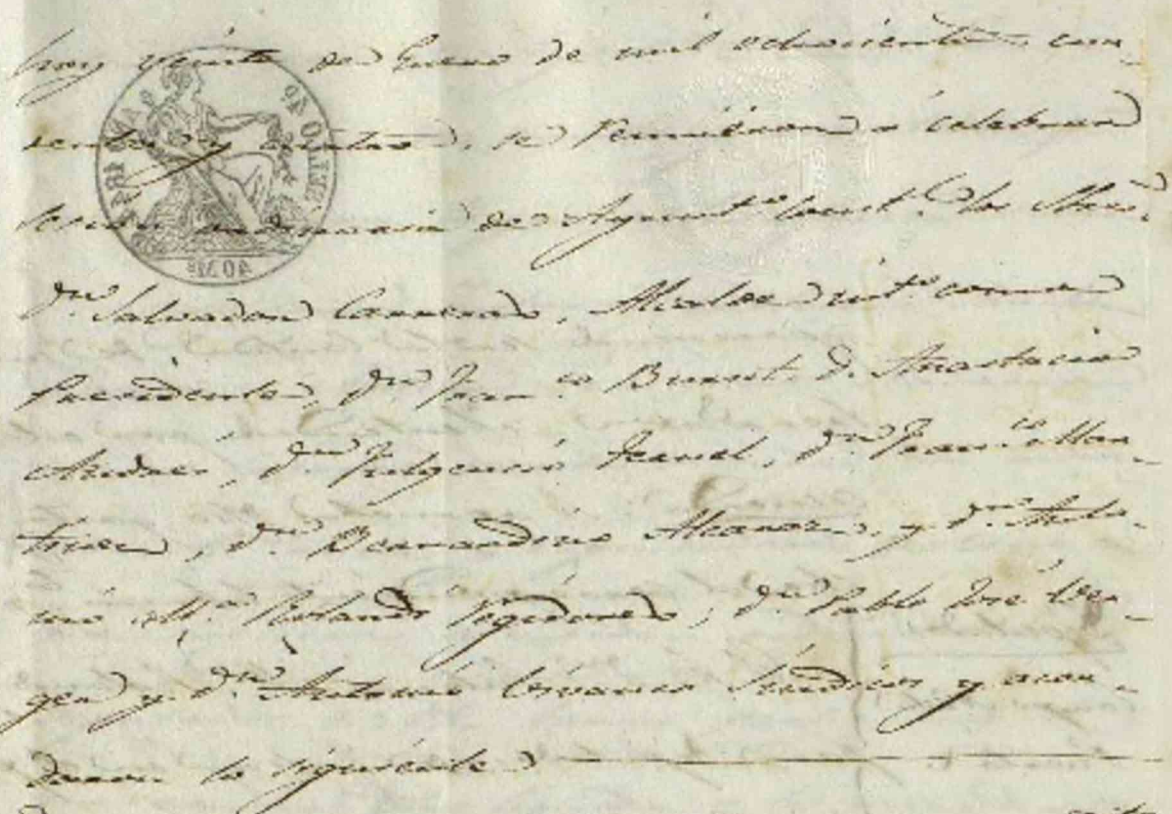 hoy veinte de Enero de mil ochocientos cua-
renta y cuatro, se reunieron a celebrar
sesion ordinaria de Ayunt.º Const.l los Señ.s
Dn. Salvador Carreras, Alcalde int.º como
Presidente, Dn. Fran.co D. Anastacio
Andres, Dn. Fulgencio Dn. Fran.co Mar-
tinez, Dn. Bernardino Alcaraz, y Dn. Anto-
nio M.ª Regidores, Dn. Pablo José Ver-
gea y Dn. Antonio Sindicos y acor-
daron lo siguiente